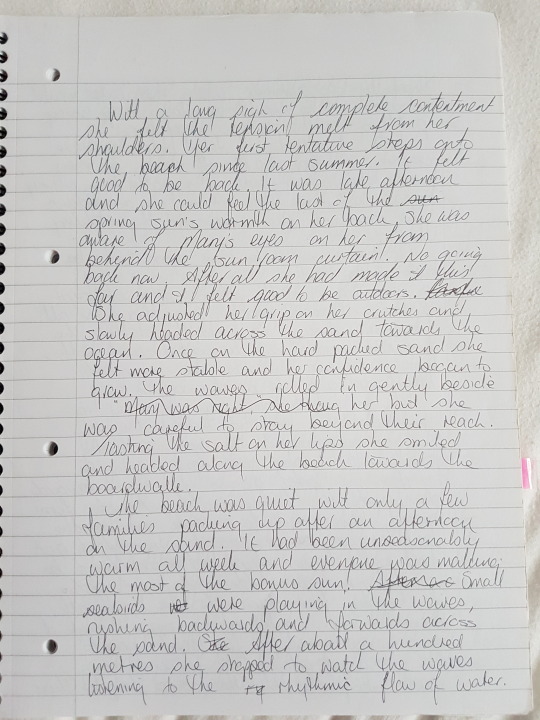 With a long sigh of complete contentment
she felt the tension melt from her
shoulders. Her first tentative steps onto
the beach since last summer. It felt
good to be back. It was late afternoon
and she could feel the last of the sun
spring sun's warmth on her back. She was
aware of Mary's eyes on her from
behind the sun room curtain. No going
back now. After all she had made it this
far and it felt good to be outdoors.
She adjusted her grip on her crutches and
slowly headed across the sand towards the
ocean. Once on the hard packed sand she
felt more stable and her confidence began to
grow. The waves rolled in gently beside
"Mary was right" she thoug her but she
was careful to stay beyond their reach.
Tasting the salt on her lips she smiled
and headed along the beach towards the
boardwalk.
The beach was quiet with only a few
families packing up after an afternoon
on the sand. It had been unseasonably
warm all week and everyone was making
the most of the bonus sun! Small
seabirds were playing in the waves,
rushing backwards and forwards across
the sand. She After about a hundred
metres she stopped to watch the waves
listening to the rhythmic flow of water.